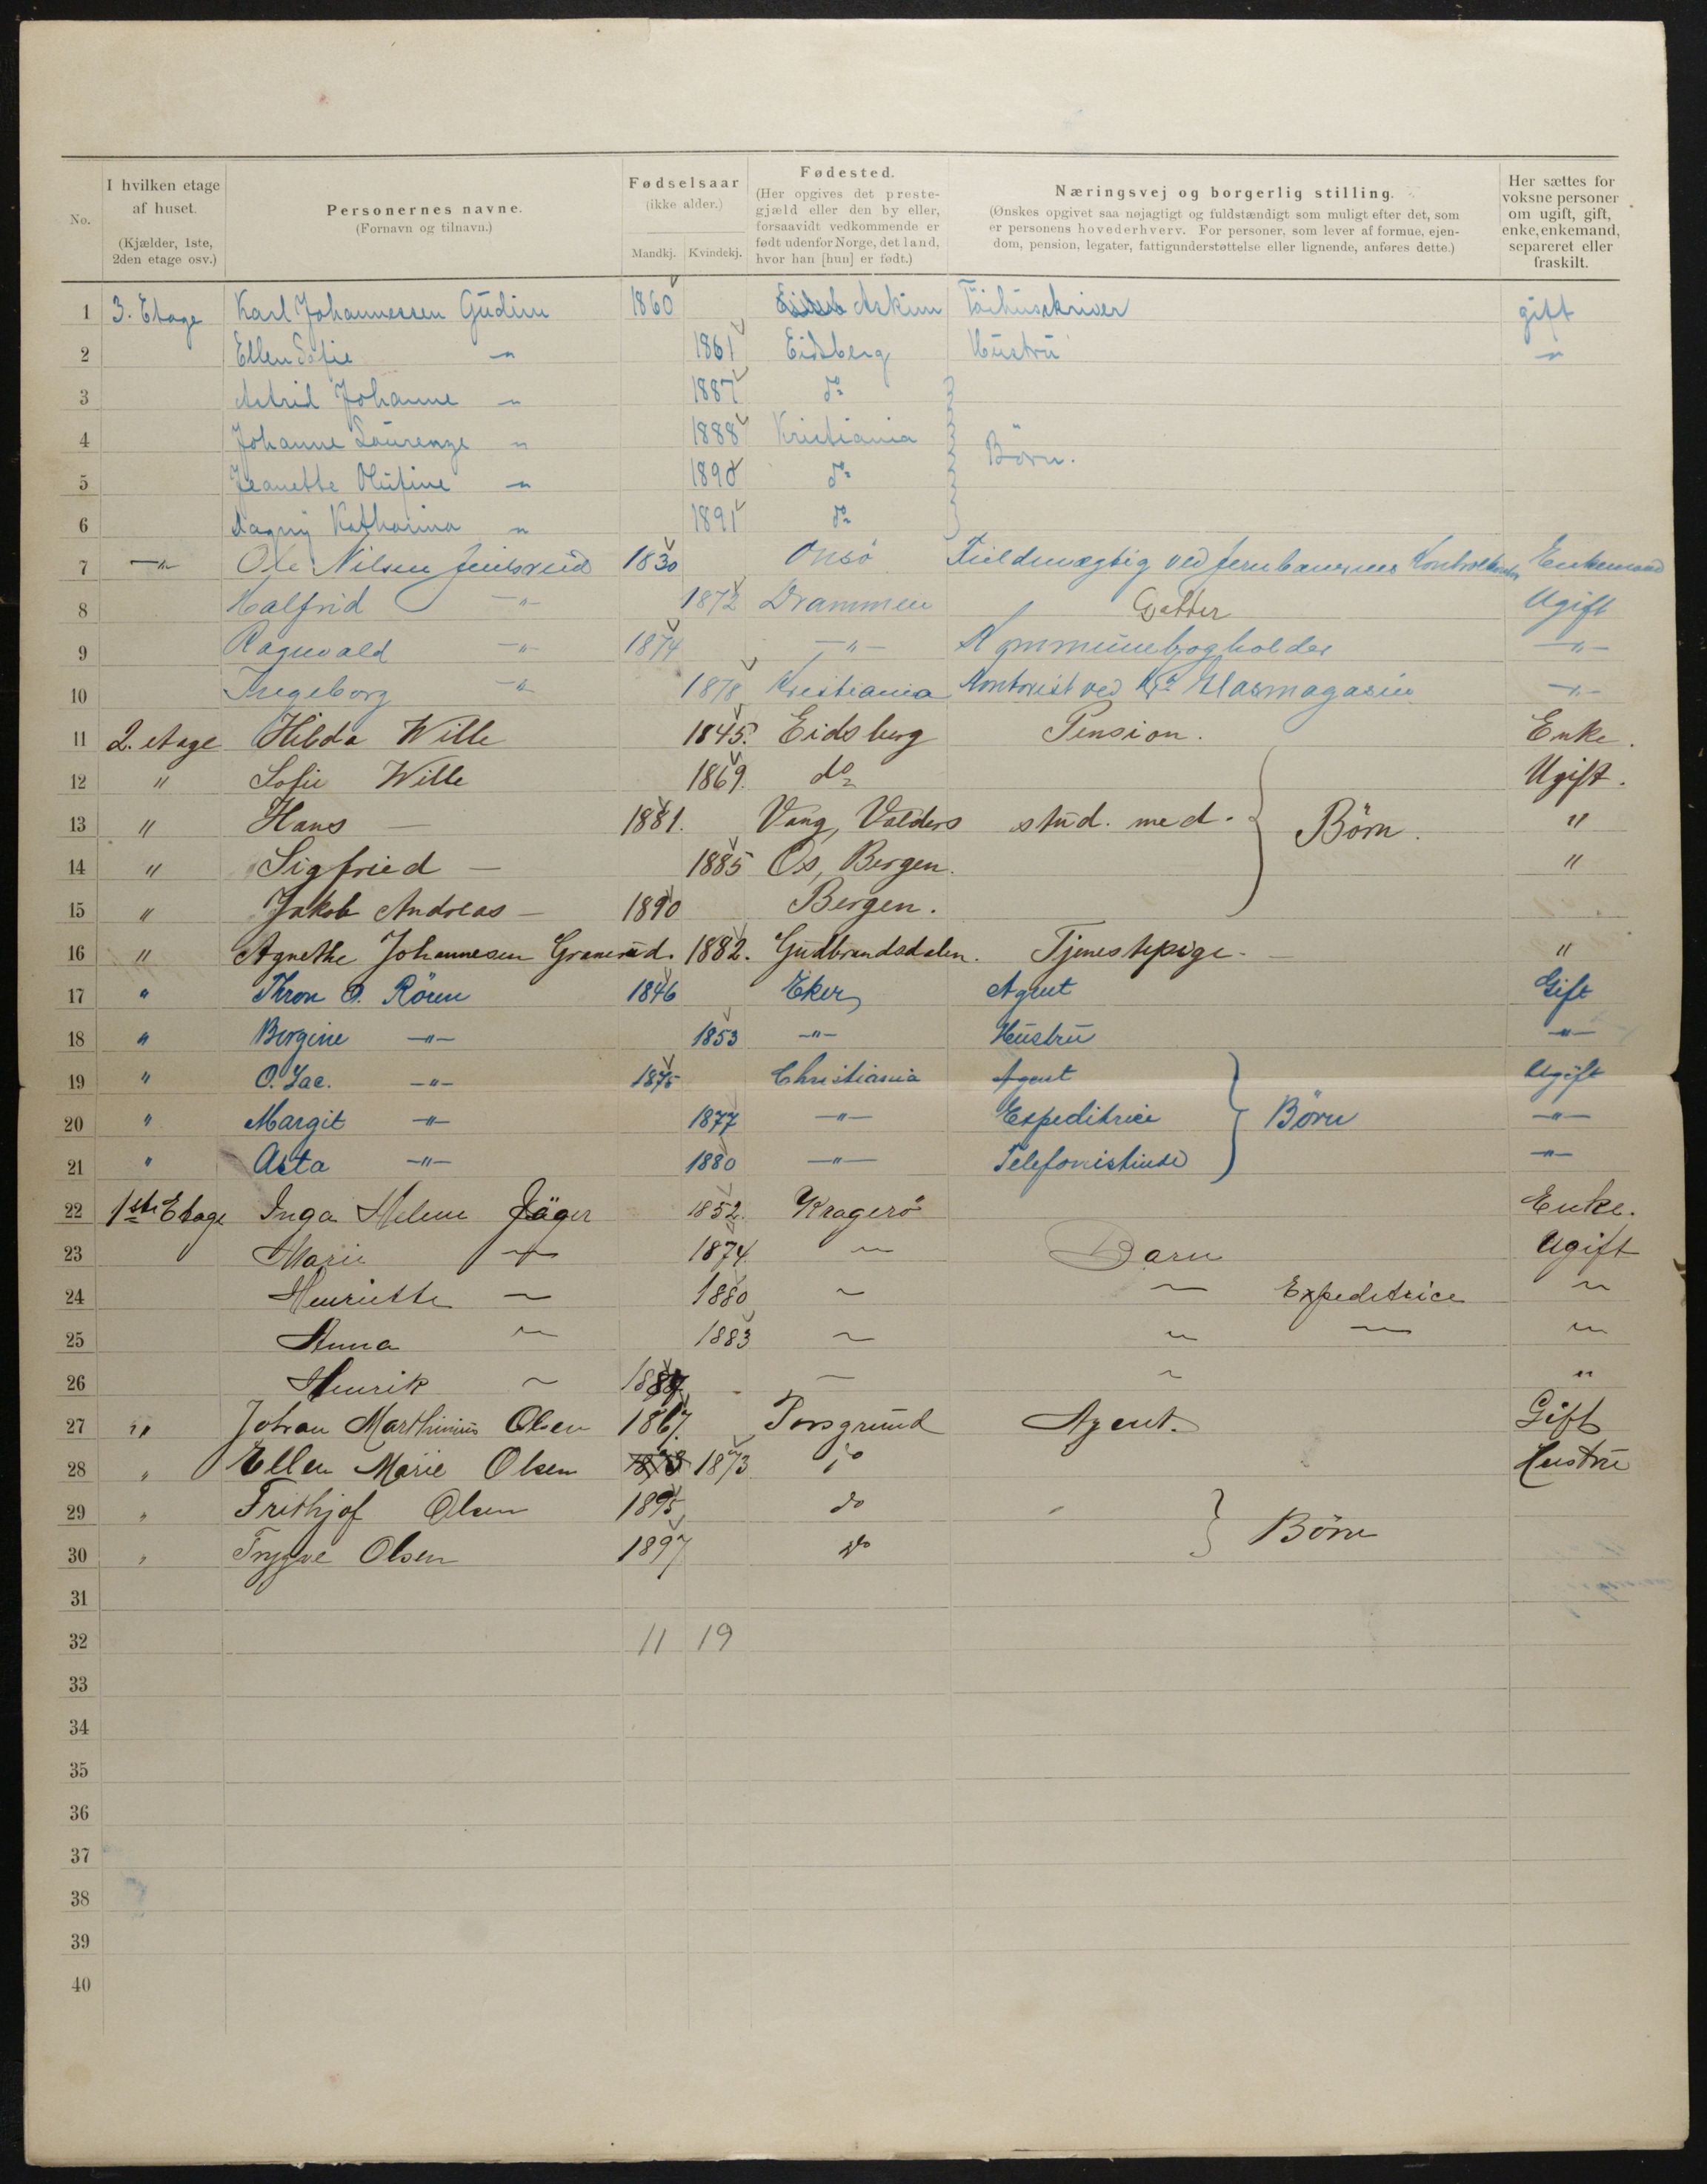 No. | I hvilken etage af huset. (Kjælder, 1ste, 2den etage osv.) | Personernes navne. (Fornavn og tilnavn.) | Fødselsaar (ikke alder.) Mandkj. Kvindekj. | Fødested. (Her opgives det prestegjæld eller den by eller, forsaavidt vedkommende er født udenfor Norge, det land, hvor han [hun] er født.) | Næringsvej og borgerlig stilling. (Ønskes opgivet saa nøjagtigt og fuldstændigt som muligt efter det, som er personens hovederhverv. For personer, som lever af formue, ejendom, pension, legater, fattigunderstøttelse eller lignende, anføres dette.) | Her sættes for voksne personer om ugift, gift, enke, enkemand, separeret eller fraskilt.
1 3. Etage Karl Johannessen Gudim 1860 Askim Töihusskriver gift
2 Ellen Sofie " 1861 Eidsberg Hustru "
3 Astrid Johanne " 1887 do
4 Johanne Laurenze " 1888 Kristiania Börn.
5 Jeanette Olufine " 1890 do
6 Dagny Katharina " 1891 do
7 " Ole Nilsen 1830 Onsö Fuldmægtig ved Jernbanernes Enkemand
8 Halfrid " 1872 Drammen Datter Ugift
9 Ragnvald " 1874 " Kommunebogholder "
10 Ingeborg " 1878 Kristiania Kontorist ved Kra Glasmagasin "
11 2. etage Hilda Wille 1845. Eidsberg Pension. Enke.
12 " Sofie Wille 1869. do Ugift.
13 " Hans — 1881. Vang, Valders stud. med. Börn. "
14 " Sigfried — 1885 Os, Bergen. "
15 " Jakob Andreas — 1890 Bergen.
16 " Agnethe Johannesen Granerud. 1882. Gudbrandsdalen. Tjenestepige. "
17 " Thron O. Rören 1846 Eker Agent Gift
18 " Bergine " 1853 " Hustru "
19 " O. Lae. " 1875 Christiania Agent Ugift
20 " Margit " 1877 " Expeditrice Börn "
21 " Asta " 1880 " Telefonistinde "
22 1ste Etage Inga Helene Jäger 1852. Kragerö Enke.
23 Marie " 1874. " Barn Ugift
24 Henriette " 1880 " " Expeditrice "
25 Anna " 1883 " " " "
26 Henrik " 1887 " " "
27 " Johan Marthinius Olsen 1867. Porsgrund Agent. Gift
28 " Ellen Marie Olsen 1873 1873 do Hustru
29 " Frithjof Olsen 1895 do
30 " Trygve Olsen 1897 do Börn
31
32 11 19
33
34
35
36
37
38
39
40